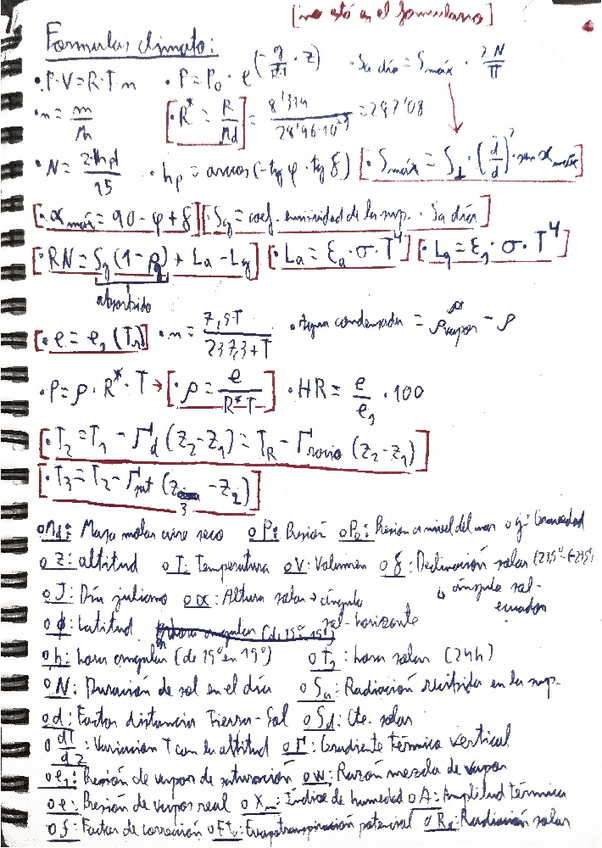 [no está en el formulario]
Formulas climato:
· P·V=R·T·n · P=P₀·e^(-g/R*T · z) · Sa día=Smáx · 2N/π
· n=m/M [· R*=R/Md]= 8'314/28'96·10⁻³ =287'08
· N=2·hp/15 · hp=arccos(-tg φ·tg δ) [· Smáx=S⊥·(d̄/d)²·sen αmáx]
[· αmáx=90-φ+δ] [· Sg=coef. de la sup. · Sa día]
[· RN=Sg(1-ρg)+La-Lg] [· La=εa·σ·T⁴] [· Lg=εg·σ·T⁴]
absorbido
[· e=es(Tr)] · n=7,5·T/237,3+T · Agua condensada=ρvapor-ρ
· P=ρ·R*·T→[· ρ=e/R*·T] · HR=e/es·100
[· T₂=T₁-Γd(z₂-z₁)=TR-Γrocio(z₂-z₁)]
[· T₃=T₂-Γsat(z₃-z₂)]
o Md: Masa molar aire seco o P: Presión o P₀: Presion a nivel del mar o g: Gravedad
o z: altitud o T: Temperatura o V: Volumen o δ: Declinación solar (23,5º-(-23,5º)
o J: Día juliano o α: Altura solar→ángulo ↳ ángulo sol-
sol-horizonte ecuador
o ϕ: latitud
o h: hora angular (de 15º en 15º) o ts: hora solar (24h)
o N: Duración de sol en el día o Sa: Radiación recibida en la sup.
o d: Factor distancia Tierra-Sol o Sd: Cte. solar
o dT/dz: Variacion T con la altitud o Γ: Gradiente térmico vertical
o es: Presión de vapor de saturación o w: Razón mezcla de vapor
o e: Presion de vapor real o Xm: Índice de humedad o A: Amplitud térmica
o f: Factor de corrección o ETo: Evapotranspiración potencial o Rs: Radiación solar